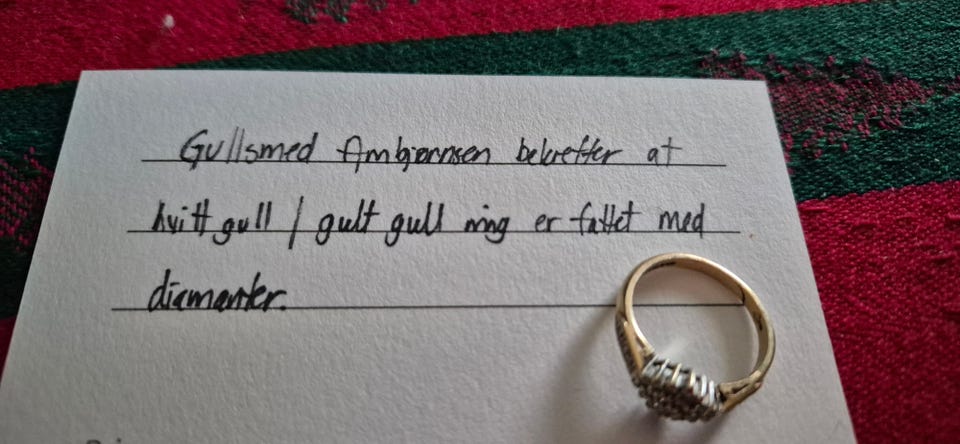 Gullsmed Ambjørnsen bekrefter at
hvitt gull / gult gull ring er fattet med
diamanter.